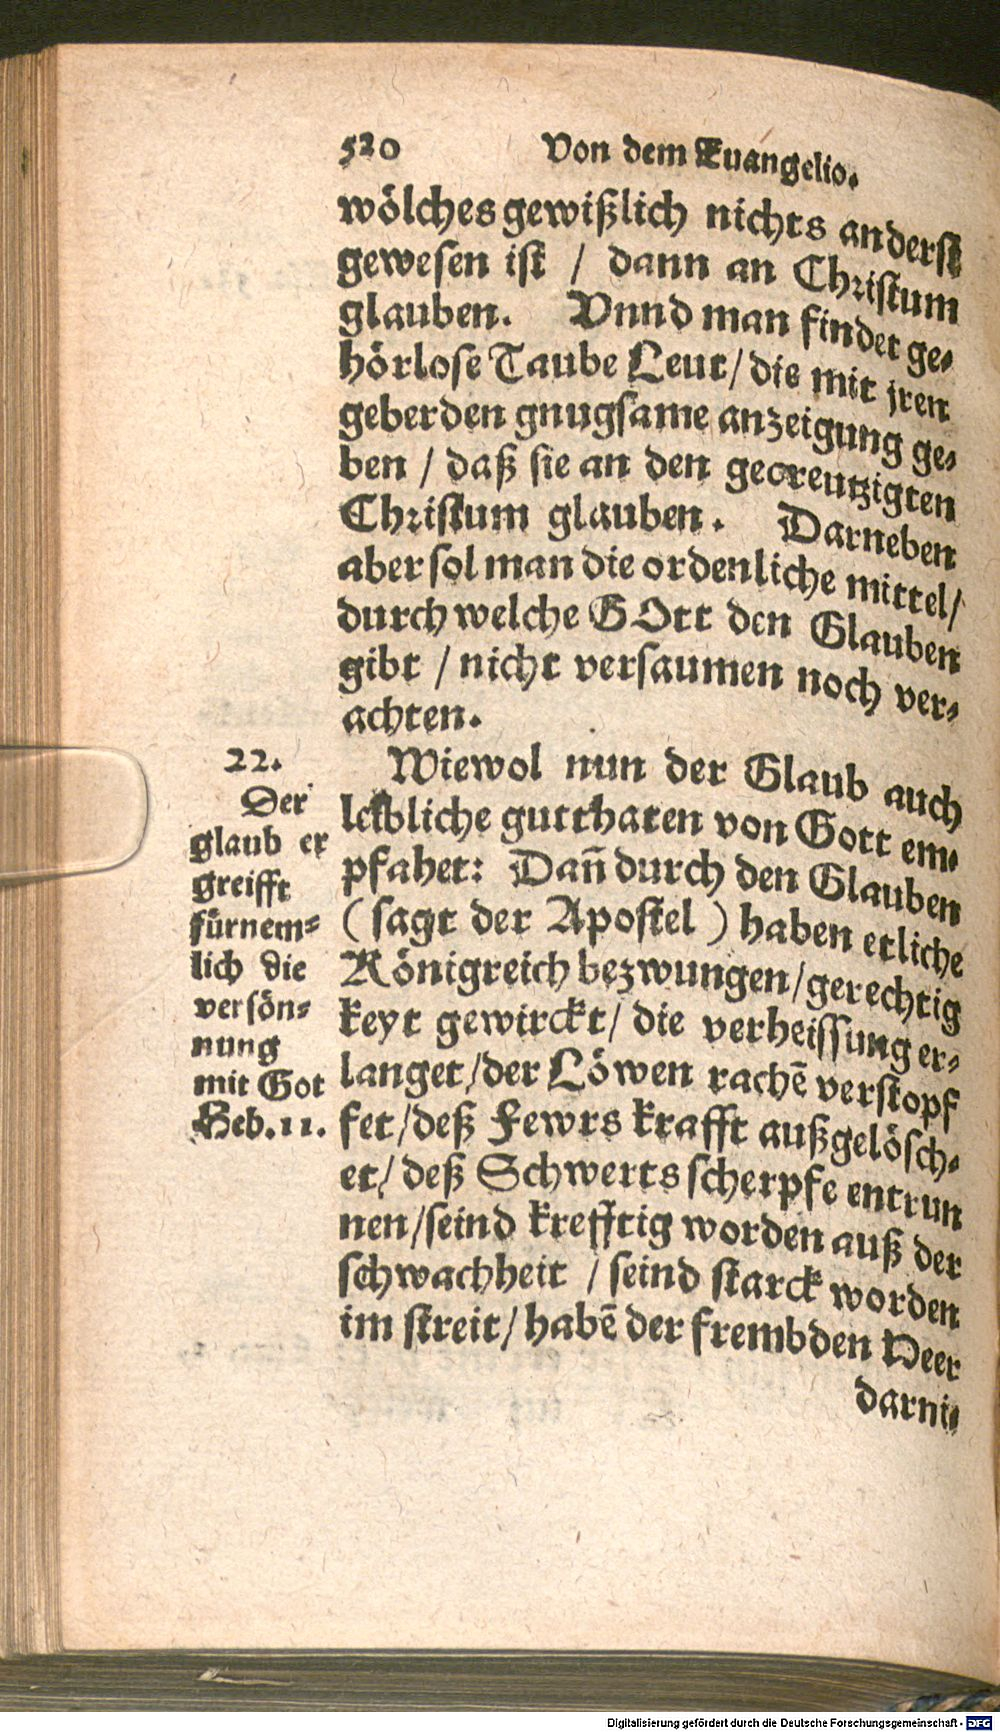 520 Von dem Euangelio.
wölches gewißlich nichts anderst
gewesen ist / dann an Christum
glauben. Vnnd man findet ge-
hörlose Taube Leut/ die mit jren
geberden gnugsame anzeigung ge-
ben / daß sie an den gecreutzigten
Christum glauben. Darneben
aber sol man die ordenliche mittel/
durch welche GOtt den Glauben
gibt / nicht versaumen noch ver-
achten.
22.
Der
glaub er
greifft
fürnem-
lich die
versön-
nung
mit Got
Heb. 11.
Wiewol nun der Glaub auch
leibliche gutthaten von Gott em-
pfahet: Dañ durch den Glauben
(sagt der Apostel) haben etliche
Königreich bezwungen/ gerechtig
keyt gewirckt/ die verheissung er-
langet/ der Löwen rachē verstopf
fet/ deß Fewrs krafft außgelösch-
et/ deß Schwerts scherpfe entrun
nen/ seind krefftig worden auß der
schwachheit / seind starck worden
im streit/ habē der frembden Heer
darni-
Digitalisierung gefördert durch die Deutsche Forschungsgemeinschaft - DFG